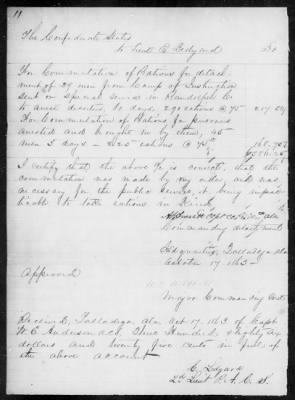 The Confederate States
To Lieut C. Ledyard Dr
For Commutation of Rations for detach
ment of 29 men from Camp of Instruction
sent on Special Service in Randolph Co
to arrest deserters, 10 days, 290 rations @ 75 217.50
For Commutation of Rations for prisoners
arrested and brought in by them, 45
men 5 days - 225 rations @ 75 168.75
$386.25
I certify that the above is correct, that the
commutation was made by my order and nec
essary for the public service, it being imprac
ticable to take rations in Kind
Commanding detachment
Hd quarters, Talladega Ala
October 17 1863
Approved
Major Commanding
Received, Talladega Ala Oct 17 1863 of Capt
W. C. Anderson A.C.S. Three Hundred & eighty six
dollars and twenty five cents in full of
the above account
C. Ledyard
2d Lieut P. A. C. S.